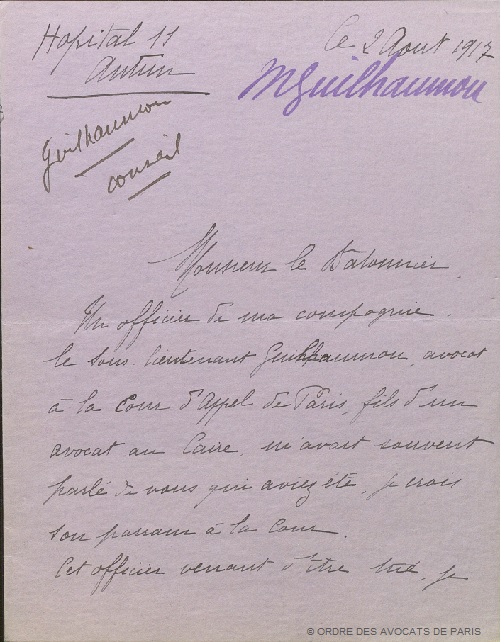 Hopital 11
Autun
le 2 Aout 1917
MGuilhaumou
Guilhaumon
conseil
Monsieur le Batonnier
Un officier de ma compagnie
le sous lieutenant Guilhaumon, avocat
à la Cour d'Appel de Paris, fils d'un
avocat au Caire, m'avait souvent
parlé de vous qui aviez été, je crois
son parrain à la Cour.
Cet officier venant d'être tué, je
© ORDRE DES AVOCATS DE PARIS